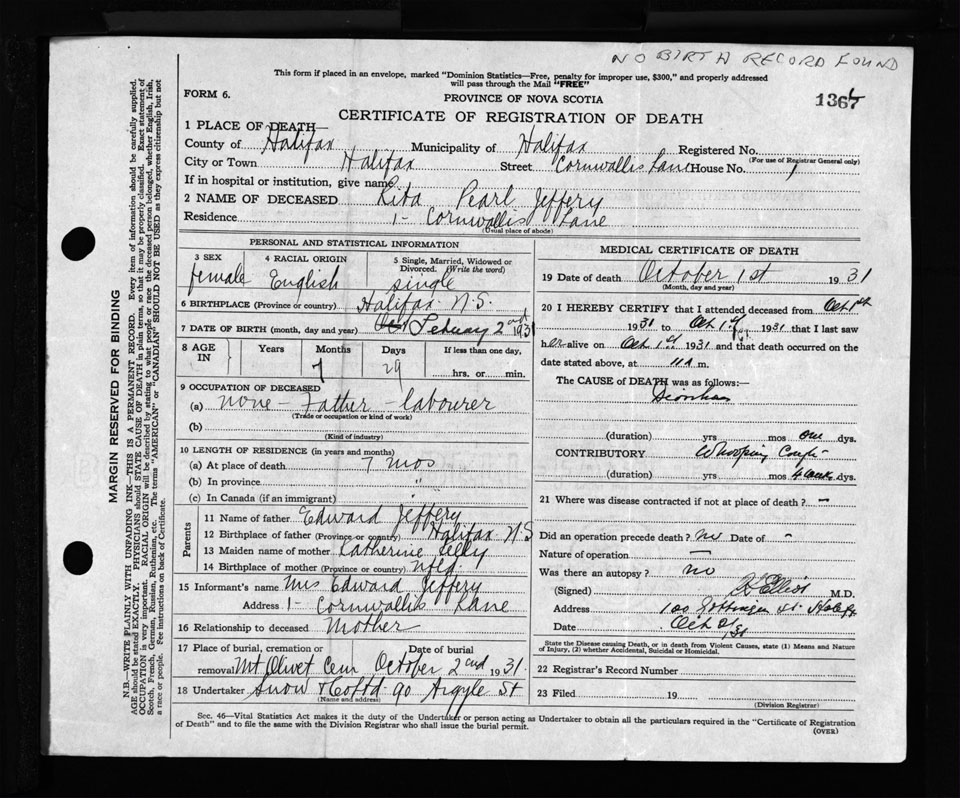 NO BIRTH RECORD FOUND
This form if placed in an envelope, marked "Dominion Statistics—Free, penalty for improper use, $300," and properly addressed
will pass through the Mail "FREE"
FORM 6.
PROVINCE OF NOVA SCOTIA
CERTIFICATE OF REGISTRATION OF DEATH
1367
1 PLACE OF DEATH—
County of Halifax Municipality of Halifax Registered No.
(For use of Registrar General only)
City or Town Halifax Street Cornwallis Lane House No. 1
If in hospital or institution, give name
2 NAME OF DECEASED Rita Pearl Jeffery
Residence 1- Cornwallis Lane
(Usual place of abode)
PERSONAL AND STATISTICAL INFORMATION
3 SEX female
4 RACIAL ORIGIN English
5 Single, Married, Widowed or Divorced. (Write the word) single
6 BIRTHPLACE (Province or country) Halifax N.S.
7 DATE OF BIRTH (month, day and year) Febuary 2nd 1931
8 AGE IN Years Months 7 Days 29 If less than one day, hrs. or min.
9 OCCUPATION OF DECEASED
(a) none - Father - labourer
(Trade or occupation or kind of work)
(b)
(Kind of industry)
10 LENGTH OF RESIDENCE (in years and months)
(a) At place of death 7 mos
(b) In province "
(c) In Canada (if an immigrant) "
Parents
11 Name of father Edward Jeffery
12 Birthplace of father (Province or country) Halifax N S
13 Maiden name of mother Katherine
14 Birthplace of mother (Province or country) nfld.
15 Informant's name Mrs Edward Jeffery
Address 1- Cornwallis Lane
16 Relationship to deceased Mother
17 Place of burial, cremation or removal Mt Olivet Cem Date of burial October 2nd 1931.
18 Undertaker Snow & Co Ltd 90 Argyle St
(Name and address)
MEDICAL CERTIFICATE OF DEATH
19 Date of death October 1st 1931
(Month, day and year)
20 I HEREBY CERTIFY that I attended deceased from Oct 1st
1931 to Oct 1st 1931 that I last saw
her alive on Oct 1st 1931 and that death occurred on the
date stated above, at 11 A m.
The CAUSE of DEATH was as follows:—
Diorrhea
(duration) yrs mos one dys.
CONTRIBUTORY Whooping Cough
(duration) yrs mos 4 weeks dys.
21 Where was disease contracted if not at place of death? —
Did an operation precede death? no Date of -
Nature of operation —
Was there an autopsy? no
(Signed) Elliot M.D.
Address 100 Gottingen St. Halifax
Date Oct 2/31
State the Disease causing Death, or in death from Violent Causes, state (1) Means and Nature
of Injury, (2) whether Accidental, Suicidal or Homicidal.
22 Registrar's Record Number
23 Filed 19
(Division Registrar)
Sec. 46—Vital Statistics Act makes it the duty of the Undertaker or person acting as Undertaker to obtain all the particulars required in the "Certificate of Registration
of Death" and to file the same with the Division Registrar who shall issue the burial permit.
(OVER)
MARGIN RESERVED FOR BINDING
N.B.—WRITE PLAINLY WITH UNFADING INK—THIS IS A PERMANENT RECORD. Every item of information should be carefully supplied.
AGE should be stated EXACTLY. PHYSICIANS should STATE CAUSE OF DEATH in plain terms, so that it may be properly classified. Exact statement of
OCCUPATION is very important. RACIAL ORIGIN will be described by stating to what people or race the deceased person belonged, whether English, Irish,
Scotch, French, German, Russian, Ruthenian, etc. The terms "AMERICAN" or "CANADIAN" SHOULD NOT BE USED as they express citizenship but not
a race or people. See instructions on back of Certificate.